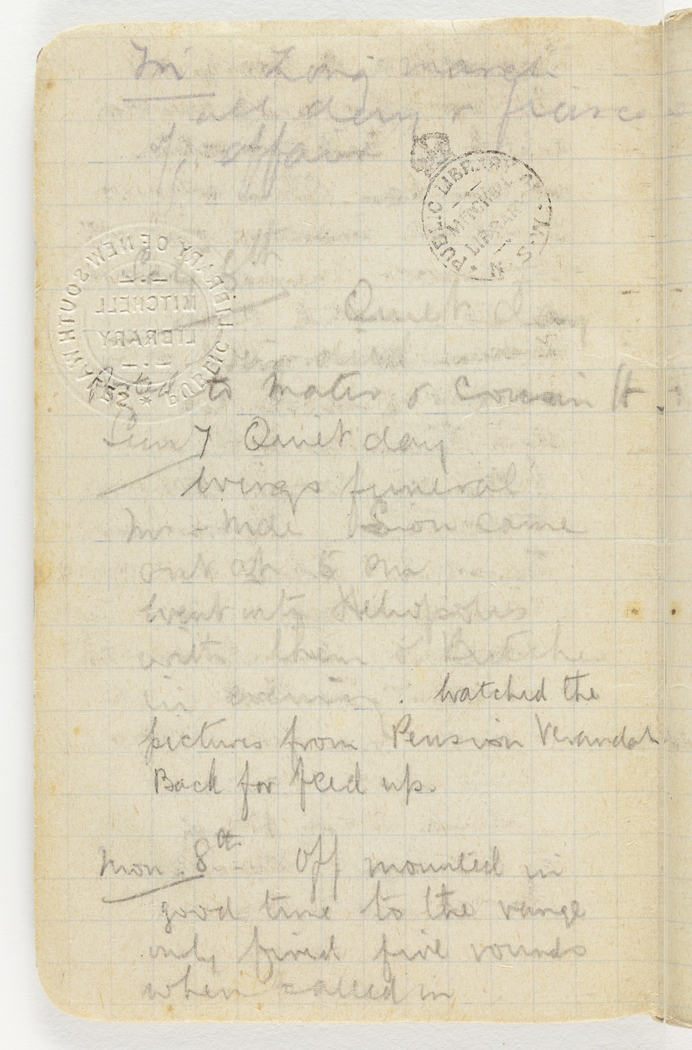 Fri Long march
all day & fiasco
of affair
PUBLIC LIBRARY OF N.S.W.
MITCHELL
LIBRARY
PUBLIC LIBRARY OF NEW SOUTH WALES
MITCHELL
LIBRARY
Sat 6th
Quiet day
to Mater & Cousin H
Sun 7 Quiet day
funeral
Mr & Mde Sion came
out at 5
Went into Heliopolis
with them & Butch
in evening. Watched the
pictures from Pension Verandah
Back for feed up.
Mon. 8th Off mounted in
good time to the range
only fired five rounds
when called in